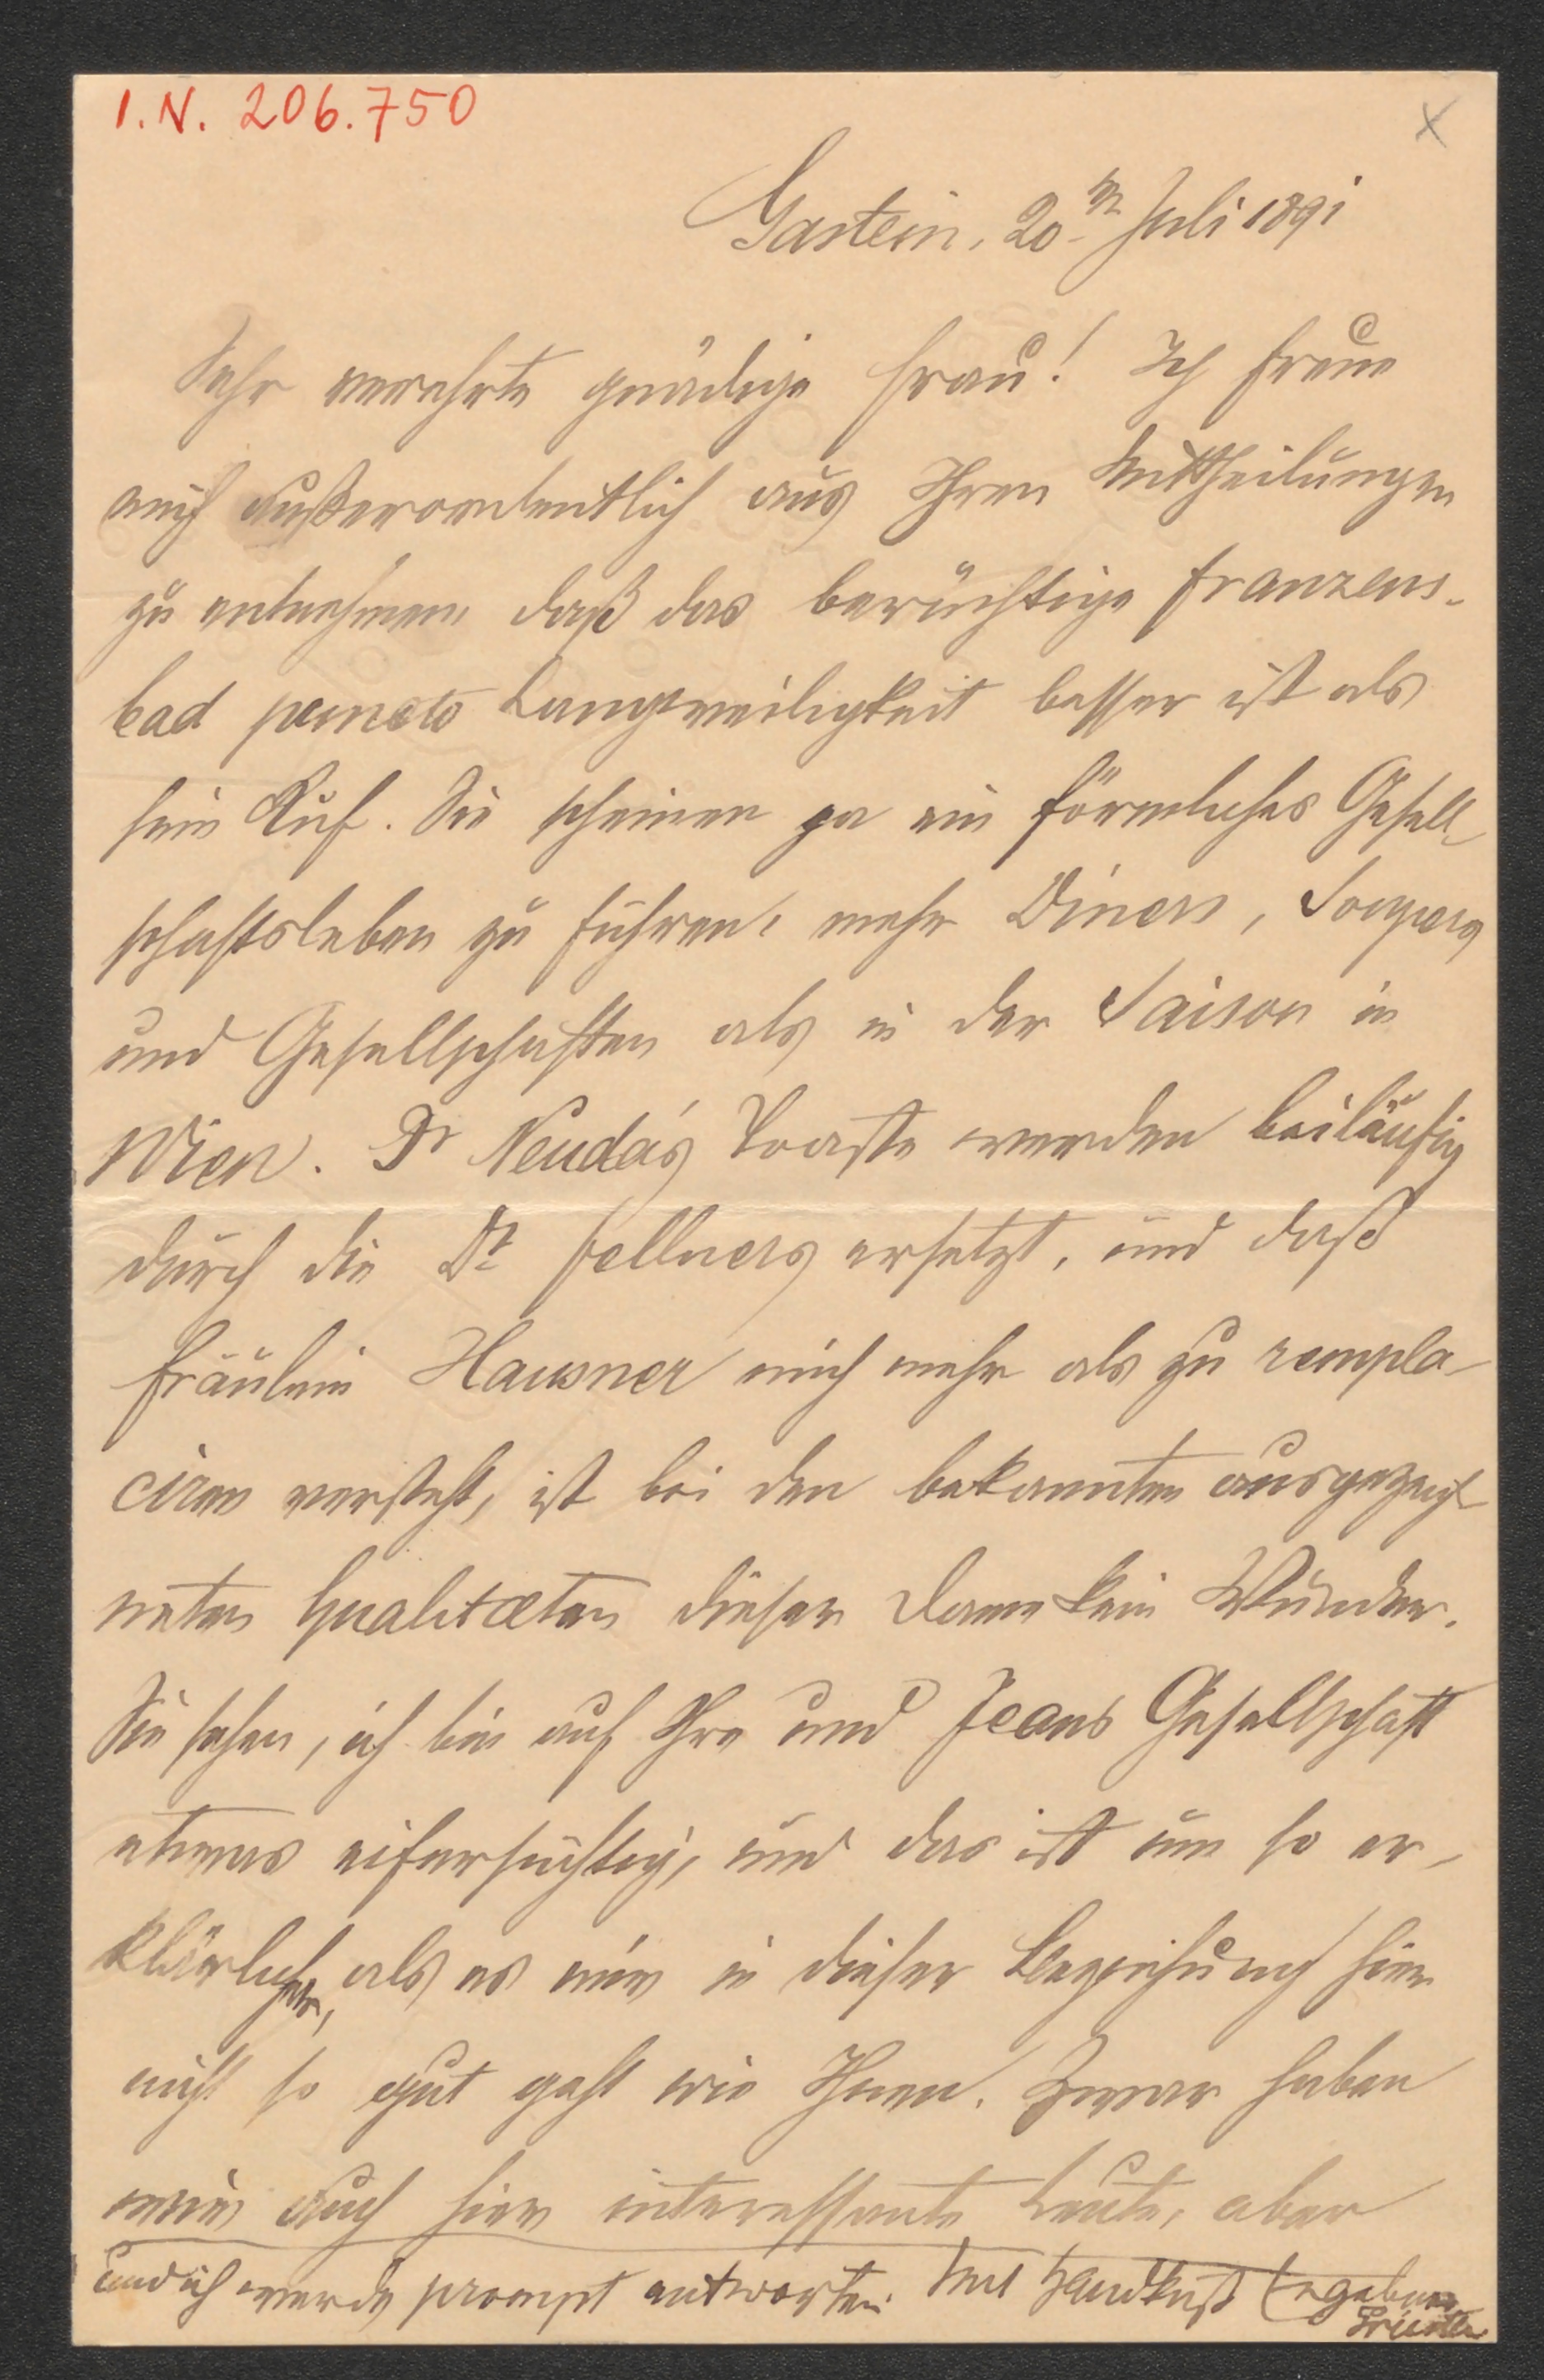 I.N. 206.750
Gastein, 20ten Juli 1891
Sehr verehrte gnädige Frau! Ich freue
mich außerordentlich aus Ihren Mittheilungen
zu entnehmen, daß das berüchtige Franzens-
bad puncto Langweiligkeit besser ist als
sein Ruf. Sie scheinen ja ein förmliches Gesell-
schaftsleben zu führen, mehr Diners, Soupers
und Gesellschaften als in der Saison in
Wien. Dr Neuda's Toaste werden beiläufig
durch die Dr Fellners ersetzt, und daß
Fräulein Hausner mich mehr als zu rempla-
ciren versteht, ist bei den bekannten ausgezeich-
neten Qualitæten dieser Dame kein Wunder.
Sie sehen, ich bin auf Ihre und Jeans Gesellschaft
etwas eifersüchtig, und das ist um so er-
klärlicher, als es mir in dieser Beziehung hier
nicht so gut geht wie Ihnen. Zwar haben
wir auch hier interessante Leute, aber
und ich werde prompt antworten. Mit Handkuß Ergebener